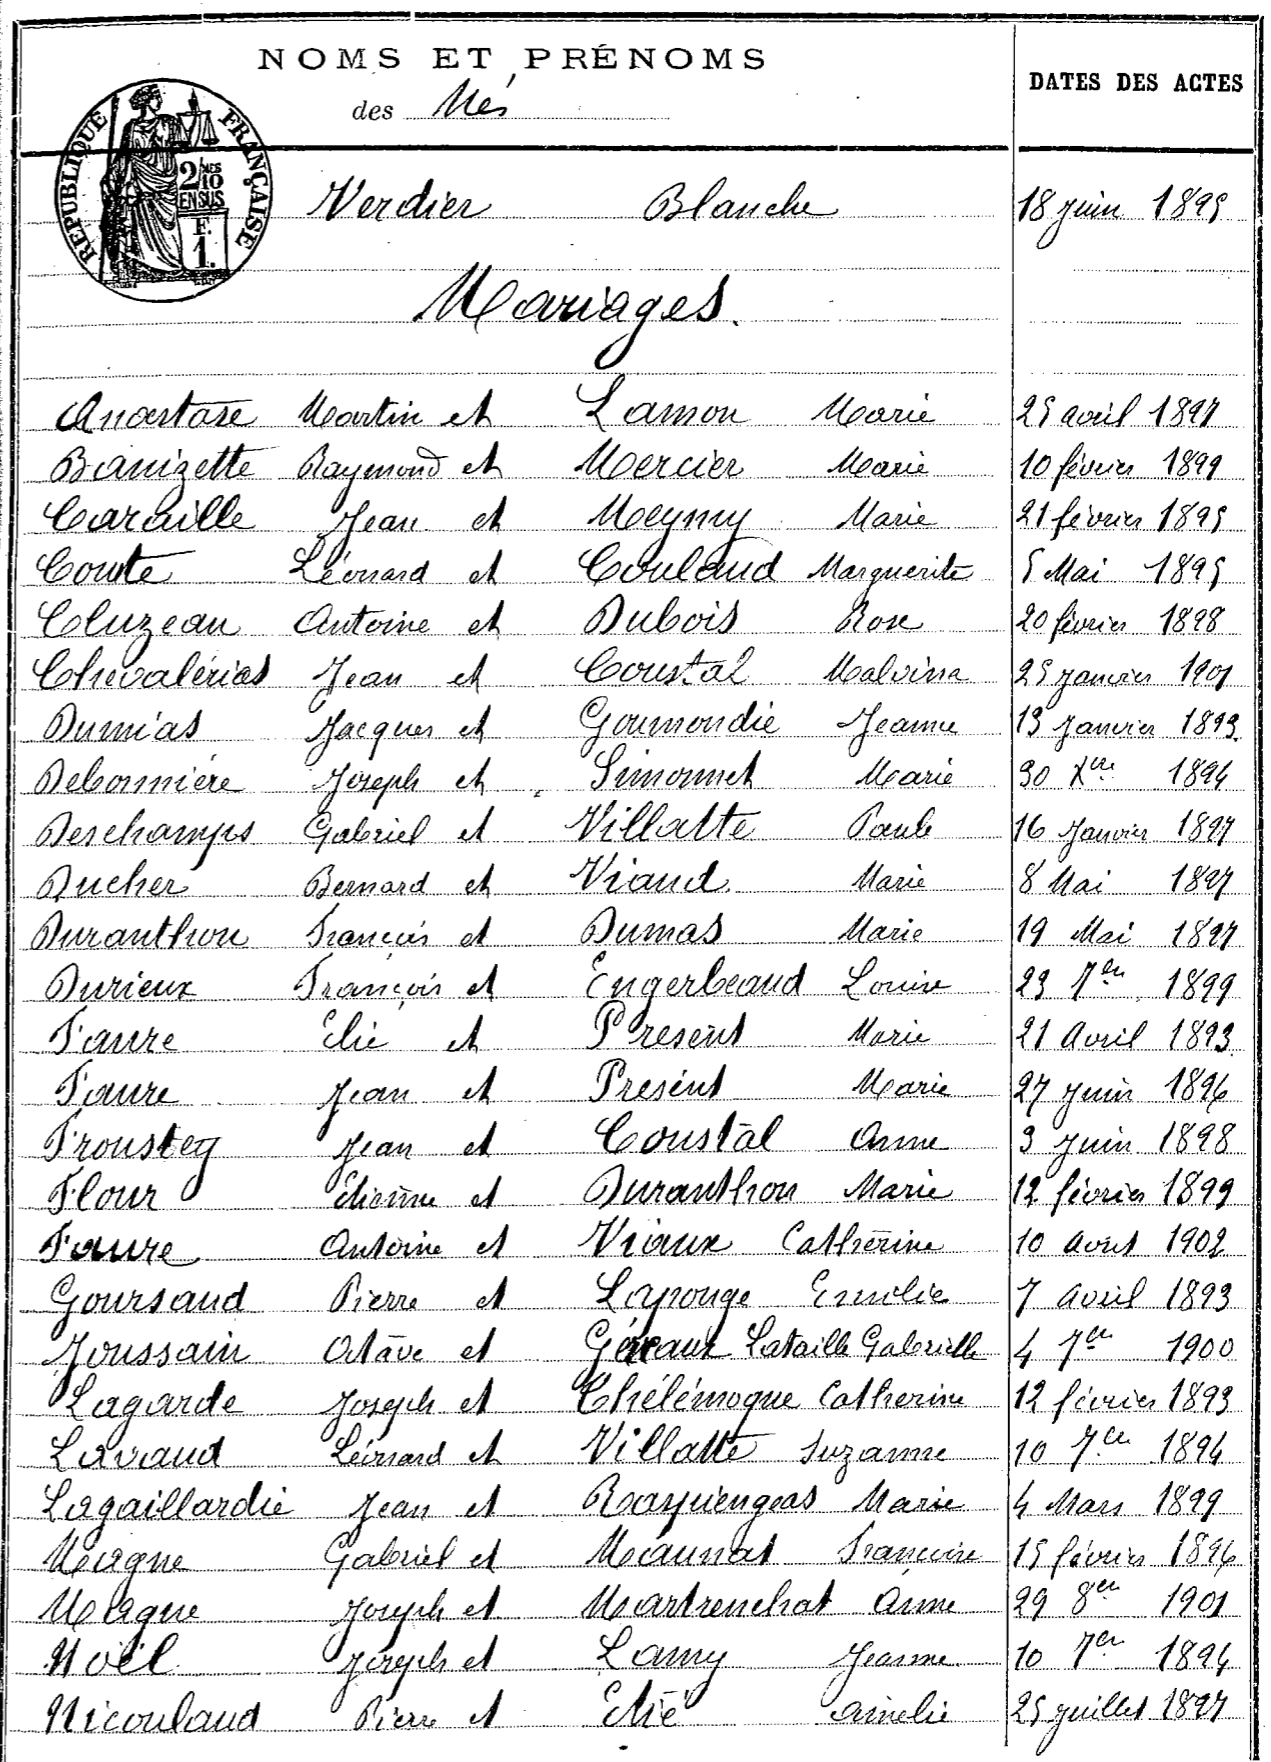 NOMS ET PRÉNOMS
des Nés
DATES DES ACTES
RÉPUBLIQUE FRANÇAISE
2/10 MES
EN SUS
F.
1.
Verdier Blanche 18 juin 1895
Mariages.
Anastase Martin et Lamon Marie 25 avril 1897
Banizette Raymond et Mercier Marie 10 février 1899
Caraille Jean et Meymy Marie 21 février 1895
Comte Léonard et Coulaud Marguerite 5 Mai 1895
Cluzeau Antoine et Dubois Rose 20 février 1898
Chevalérias Jean et Coustal Malvina 25 janvier 1901
Dumias Jacques et Goumondie Jeanne 13 Janvier 1893
Debonnière Joseph et Simonnet Marie 30 Xbre 1894
Deschamps Gabriel et Villatte Paule 16 Janvier 1897
Ducher Bernard et Viaud Marie 8 Mai 1897
Duranthon François et Dumas Marie 19 Mai 1897
Durieux François et Engerbeaud Louise 23 7bre 1899
Faure Elie et Présent Marie 21 Avril 1893
Faure Jean et Présent Marie 27 juin 1896
Froustey Jean et Coustal Anne 3 Juin 1898
Flour Etienne et Duranthon Marie 12 février 1899
Faure Antoine et Viaux Catherine 10 Août 1902
Goursaud Pierre et Lapouge Emilie 7 avril 1893
Joussain Octave et Lataille Gabrielle 4 7bre 1900
Lagarde Joseph et Thélémoque Catherine 12 février 1893
Lavaud Léonard et Villatte Suzanne 10 7bre 1894
Lagaillardie Jean et Marie 4 Mars 1899
Magne Gabriel et Maunat Françoise 15 février 1896
Magne Joseph et Martrenchat Anne 29 8bre 1901
Noël Joseph et Lamy Jeanne 10 7bre 1894
Nicoulaud Pierre et Elie Amélie 25 juillet 1897